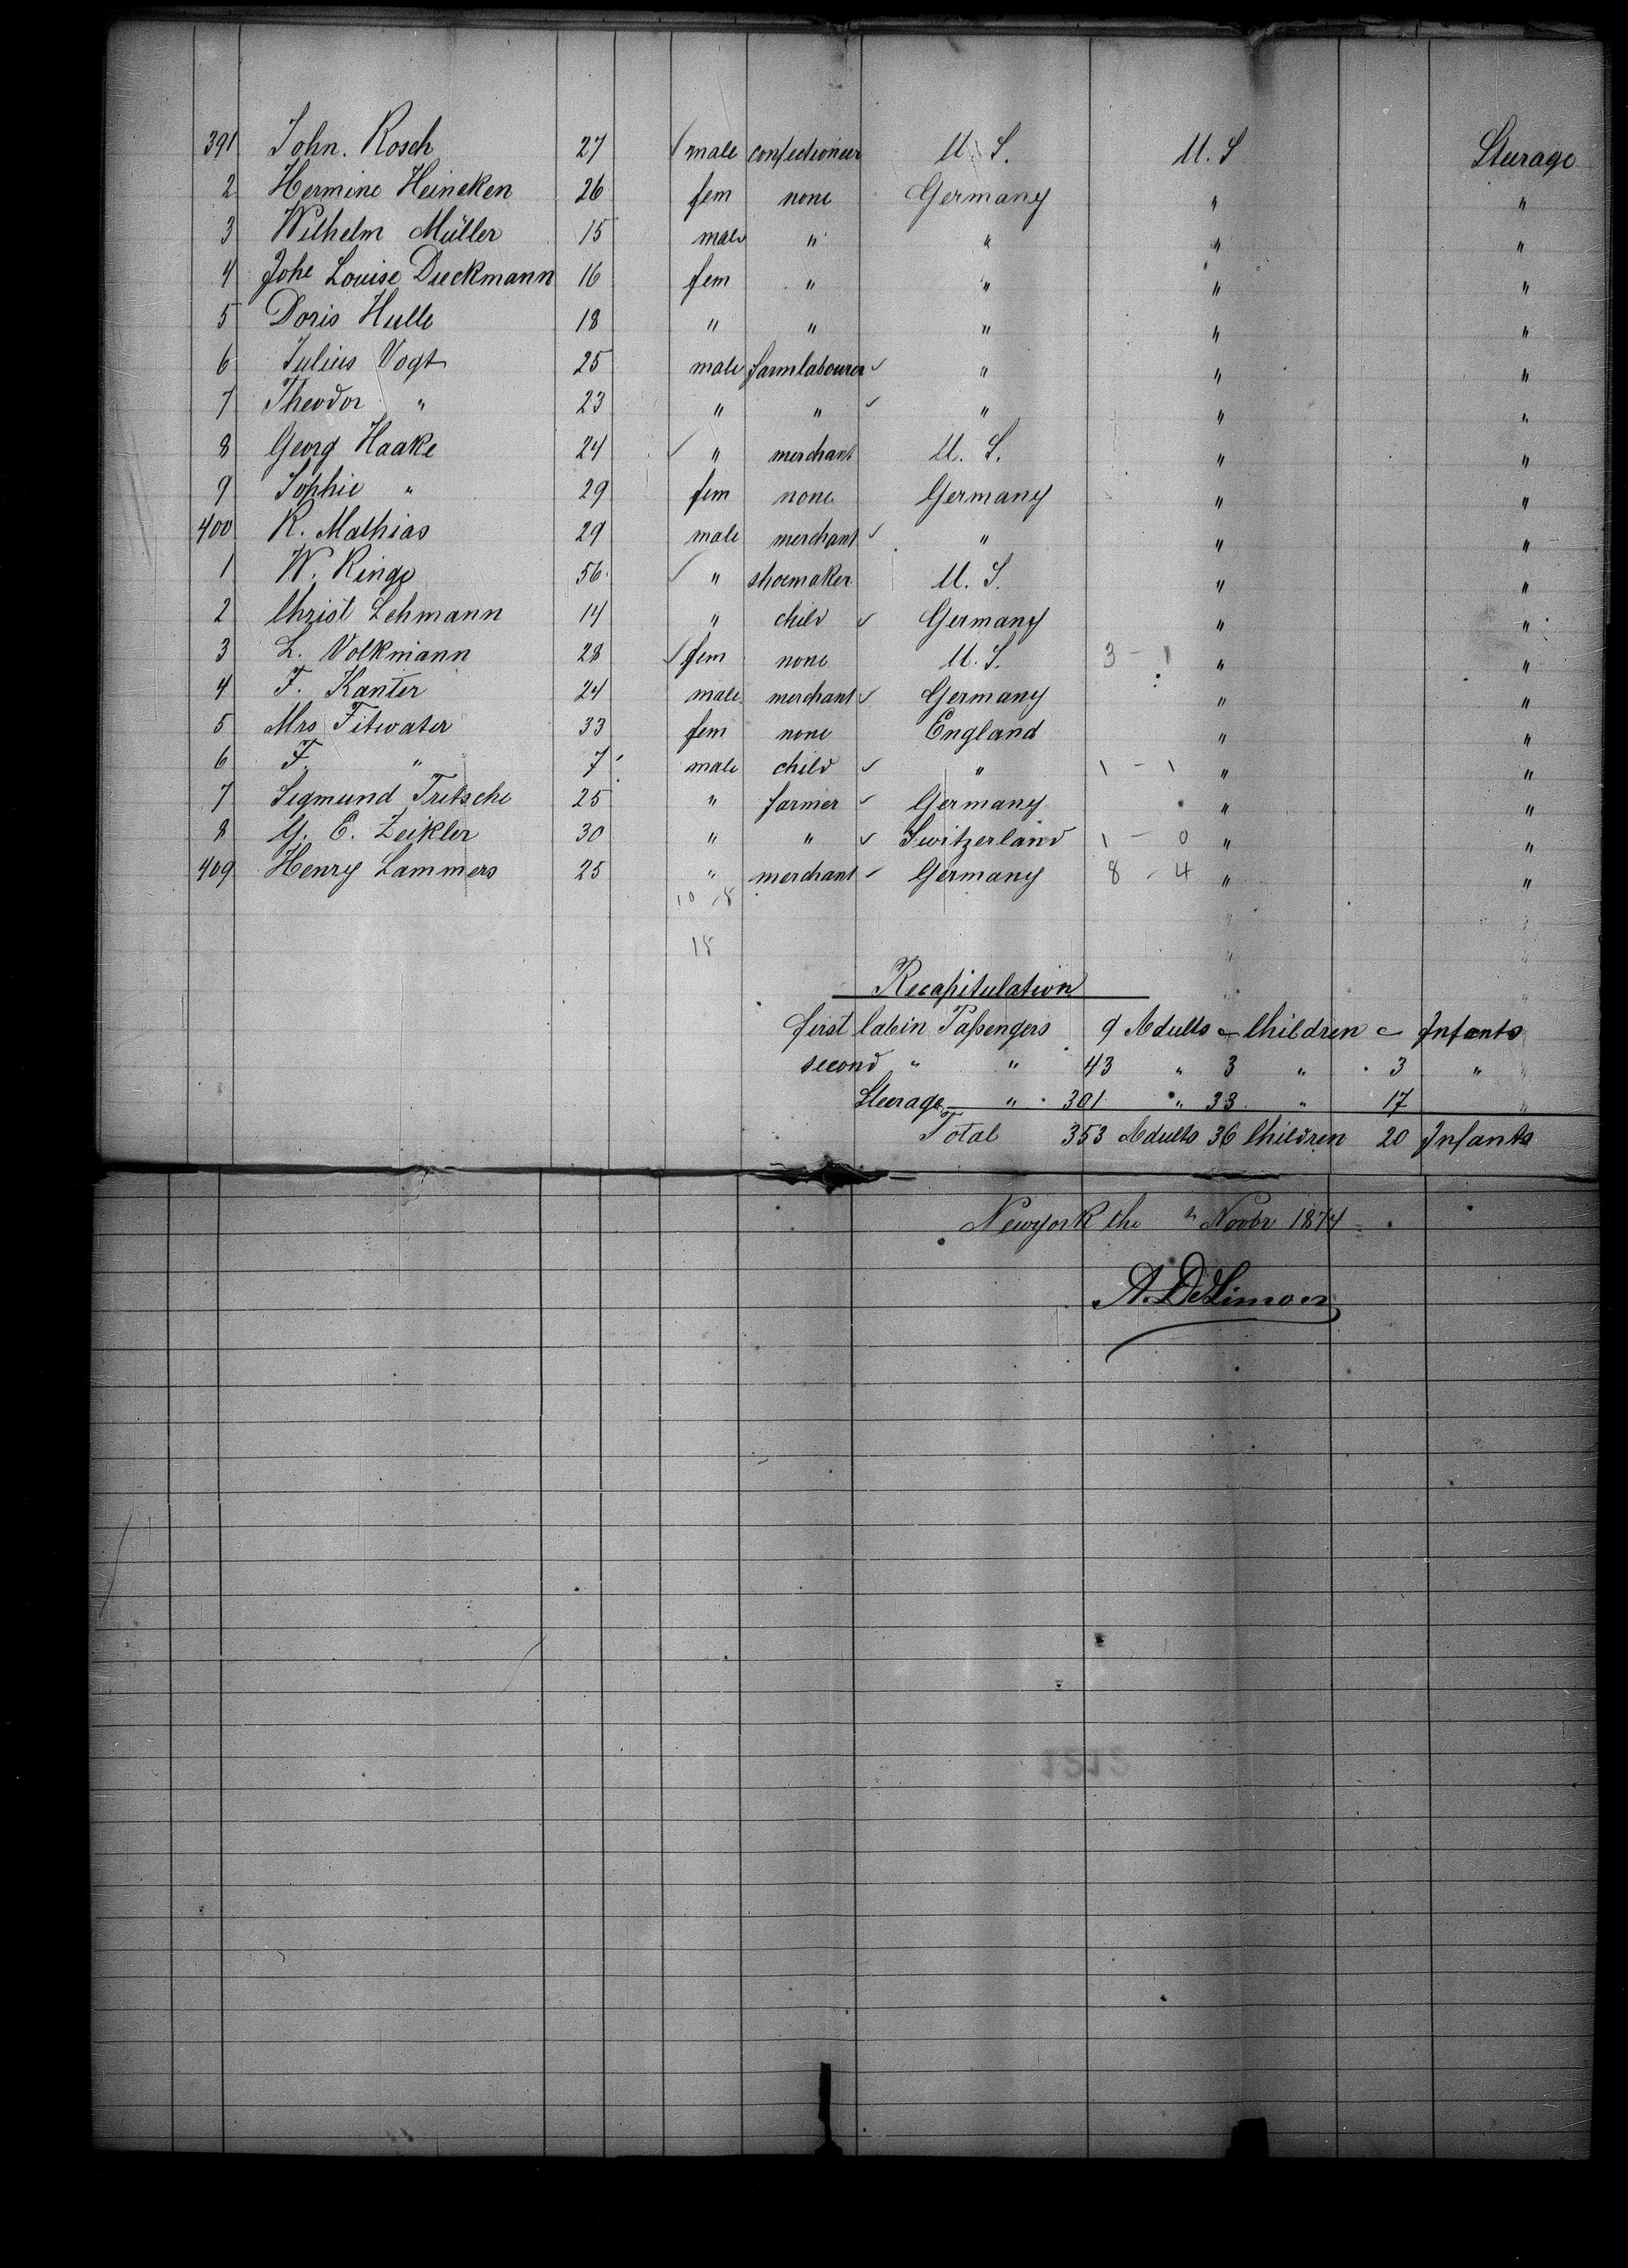 391 John. Rosch 27 ✓ male confectioner U. S. U. S Steerage
2 Hermine Heineken 26 fem none Germany " "
3 Wilhelm Müller 15 male " " " "
4 Johe Louise Dieckmann 16 fem " " " "
5 Doris Hulle 18 " " " " "
6 Julius Vogt 25 male farmlabourer ✓ " " "
7 Theodor " 23 " " ✓ " " "
8 Georg Haake 24 ✓ " merchant U. S. " "
9 Sophie " 29 fem none Germany " "
400 R. Mathias 29 male merchant ✓ " " "
1 W. Ringe 56 ✓ " shoemaker U. S. " "
2 Christ Lehmann 14 " child ✓ Germany " "
3 L. Volkmann 28 ✓ fem none U. S. 3 - 1 " "
4 F. Kanter 24 male merchant ✓ Germany " "
5 Mrs Fitwater 33 fem none England " "
6 F. " 7 male child ✓ " 1 - 1 " "
7 Sigmund Tritsche 25 " farmer ✓ Germany " "
8 G. E. Zeikler 30 " " ✓ Switzerland 1 - 0 " "
409 Henry Lammers 25 " merchant ✓ Germany 8 - 4 " "
10 - 8
18
Recapitulation
first Cabin Passengers 9 Adults - Children - Infants
second " " 43 " 3 " 3 "
Steerage " 301 " 33 " 17 "
Total 353 Adults 36 Children 20 Infants
Newyork the Novbr 1874
A. DeLimon